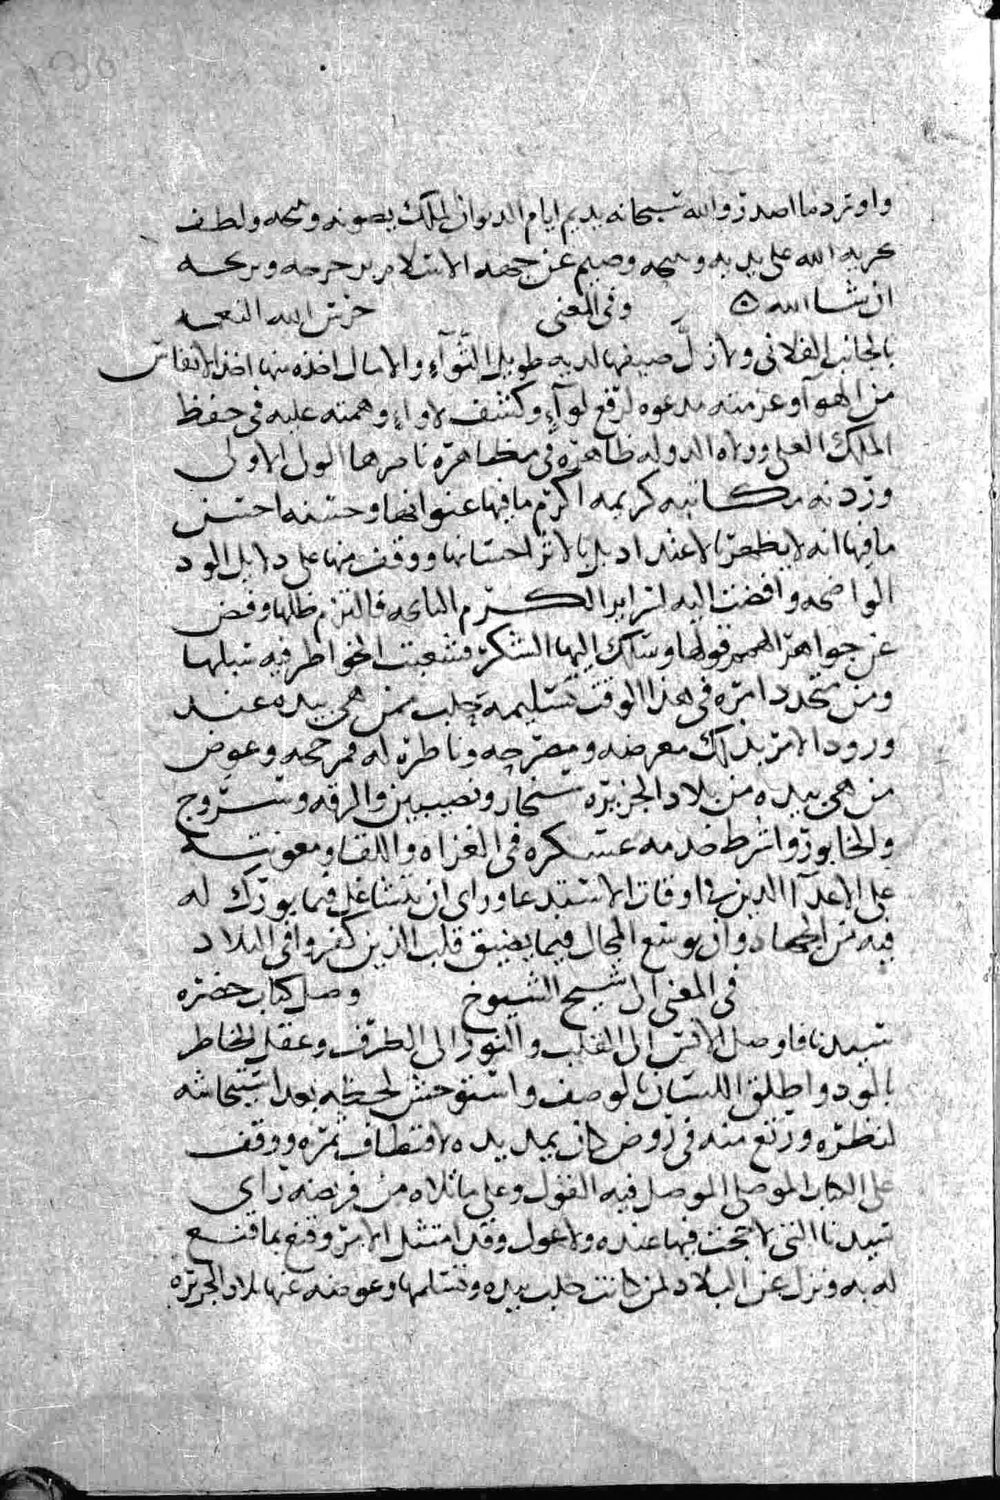 واورد ما اصدر والله سبحانه يديم ايام الديوان لملك يصونه ولطف
الله على يديه وصيم عن جهه الاسلام
ان شا الله ٥ وفي المعنى حرس الله النعمه
بالجانب الفلاني ولا زال ضيفها لديه طويل الثوآء والامال اخذه منها اخذ الانفاس
من الهوآ وعزمته مدعوه لرفع لوآء وكشف لاواء وهمته عليه في حفظ
الملك العلى وولاه الدوله ظاهره في مظاهره ناصرها الولى الاولى
وردته مكاتبه كريمه اكرم ما فيها عنوانها وحسنه احسن
ما فيها انه لا يظهر الا عند اديل الاثر احسانها ووقف منها على دلايل الود
الواضحه وافضت اليه اسراير الكرم فالتزم ظلها وفض
عن جواهر الهمم قولها وسلك اليها الشكر فشعبت الخواطر فيه سبلها
ومن متجدد امره في هذا الوقت تسليمه حلب ممن هي بيده عند
ورود الامر بذلك معرضه ومصرحه وناظره له وعوض
من هي بيده من بلاد الجزيره سنجار ونصيبين والرقه وسروج
والخابور واشرط خدمه عسكره في الغزاه واللقا ومعونته
على الاعدآ الذين في اوقات الاستدعا وراى ان يتشاغل فيما بورك له
فيه من الجهاد وان يوسع المجال فيما يضيق قلب الذين كفروا في البلاد
في المعنى الى شيخ الشيوخ وصل كتاب حضره
سيدنا فاوصل الانس الى القلب والنور الى الطرف وعقل الخاطر
بالود واطلق اللسان بالوصف واستوحش لحظه بعد استيحاشه
لنظره ورتع منه في روض كان يمد يده لاقتطاف ثمره ووقف
على الكتاب الموصلى الموصل فيه القول وعلى ما تلاه من فريضه راى
سيدنا التي لا بحث فيها عنده ولا عول وقد امتثل الامر وقنع بما قنع
له به ونزل عن البلاد لمن كانت حلب بيده وتسلمها وعوضه عنها بلاد الجزيره